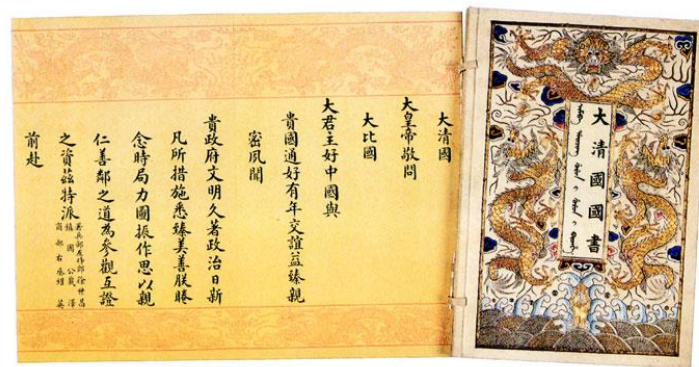 大清國國書
大清國
大皇帝敬問
大比國
大君主好中國與
貴國通好有年交誼益臻親
密夙聞
貴政府文明久著政治日新
凡所措施悉臻美善朕睠
念時局力圖振作思以親
仁善鄰之道為參觀互證
之資茲特派
兵部左侍郎徐世昌
鎮國公載澤
商部右丞紹英
前赴